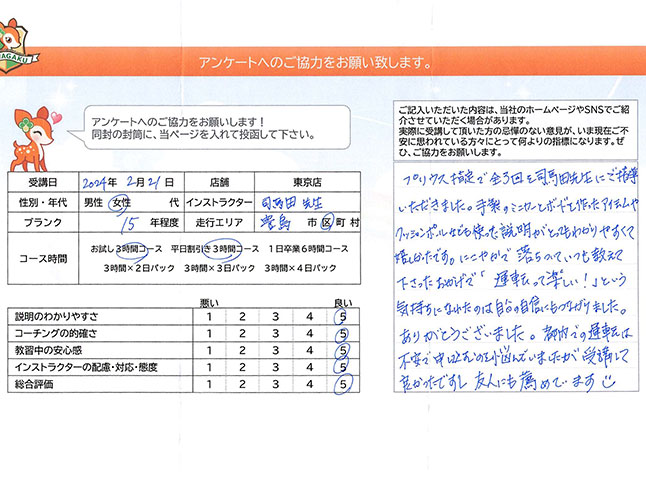 NAGAKU
アンケートへのご協力をお願い致します。
アンケートへのご協力をお願いします！
同封の封筒に、当ページを入れて投函して下さい。
受講日 2024年 2月21日 店舗 東京店
性別・年代 男性 女性 代 インストラクター 司馬田 先生
ブランク 15 年程度 走行エリア 豊島 市 区 町 村
コース時間
お試し3時間コース 平日割引き3時間コース 1日卒業6時間コース
3時間×2日パック 3時間×3日パック 3時間×4日パック
悪い 良い
説明のわかりやすさ 1 2 3 4 5
コーチングの的確さ 1 2 3 4 5
教習中の安心感 1 2 3 4 5
インストラクターの配慮・対応・態度 1 2 3 4 5
総合評価 1 2 3 4 5
ご記入いただいた内容は、当社のホームページやSNSでご紹
介させていただく場合があります。
実際に受講して頂いた方の忌憚のない意見が、いま現在ご不
安に思われている方々にとって何よりの指標になります。ぜ
ひ、ご協力をお願いします。
プリウス指定で全3回を司馬田先生にご指導
いただきました。手製のミニカーとボードを作ったアイテムや
クッションポールなども使った説明がとってもわかりやすくて
嬉しかったです。にこやかで落ちついて教えて
下さったおかげで「運転って楽しい！」という
気持ちになれたのは自分の自信にもつながりました。
ありがとうございました。都内での運転は
不安で申し込むのを悩んでいましたが受講して
良かったですし友人にも薦めています